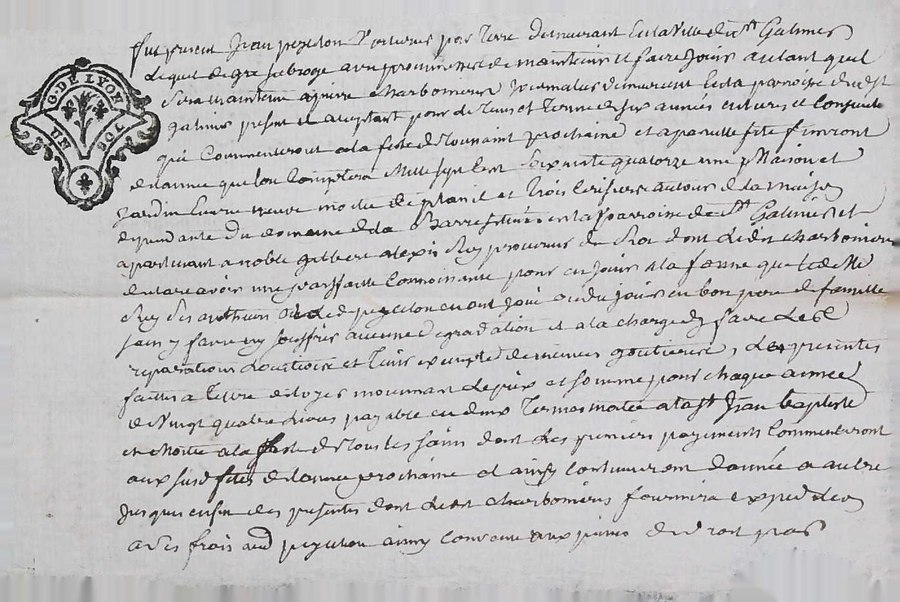 G. DE LYON
UN SOL
fut present Jean peyellon Voiturier par terre demeurant en la Ville de St Galmier
lequel de gre
sera maintenir a pierre charbonnier journalier demeurant en la parroisse dudt st
galmier present et acceptant pour le tems et terme de six années entieres et consecutives
qui commenceront a la feste de toussaint prochaine et a pareille fete finiront
de l'année que l'on comptera Mille sept cent soixante quatorze une Maison et
Jardin
dependante du domaine de la Barre situé en la parroisse de St Galmier et
apartenant a noble gilbert alexis Rey procureur du Roi dont ledt charbonnier
declare avoir une parfaitte connoissance pour en jouir a la forme que led Me
Rey ses autheurs ou led peyellon en ont joui ou du jouir en bon pere de famille
sans y faire ny souffrir aucune degradation et a la charge de faire les
reparations et tuiles exempté
faittes a titre de moyennant le prix et somme pour chaque année
de Vingt quatre livres payable en deux termes moitié a la St Jean baptiste
et moitié a la feste de tous les saints dont les premiers payements commenceront
aux susd fetes de l'année prochaine et ainsy continueront d'année a autre
jusques en fin des presentes dont ledt charbonnier fournira expedition
a ses frais aud peyellon ainsy convenu aux peines de droit